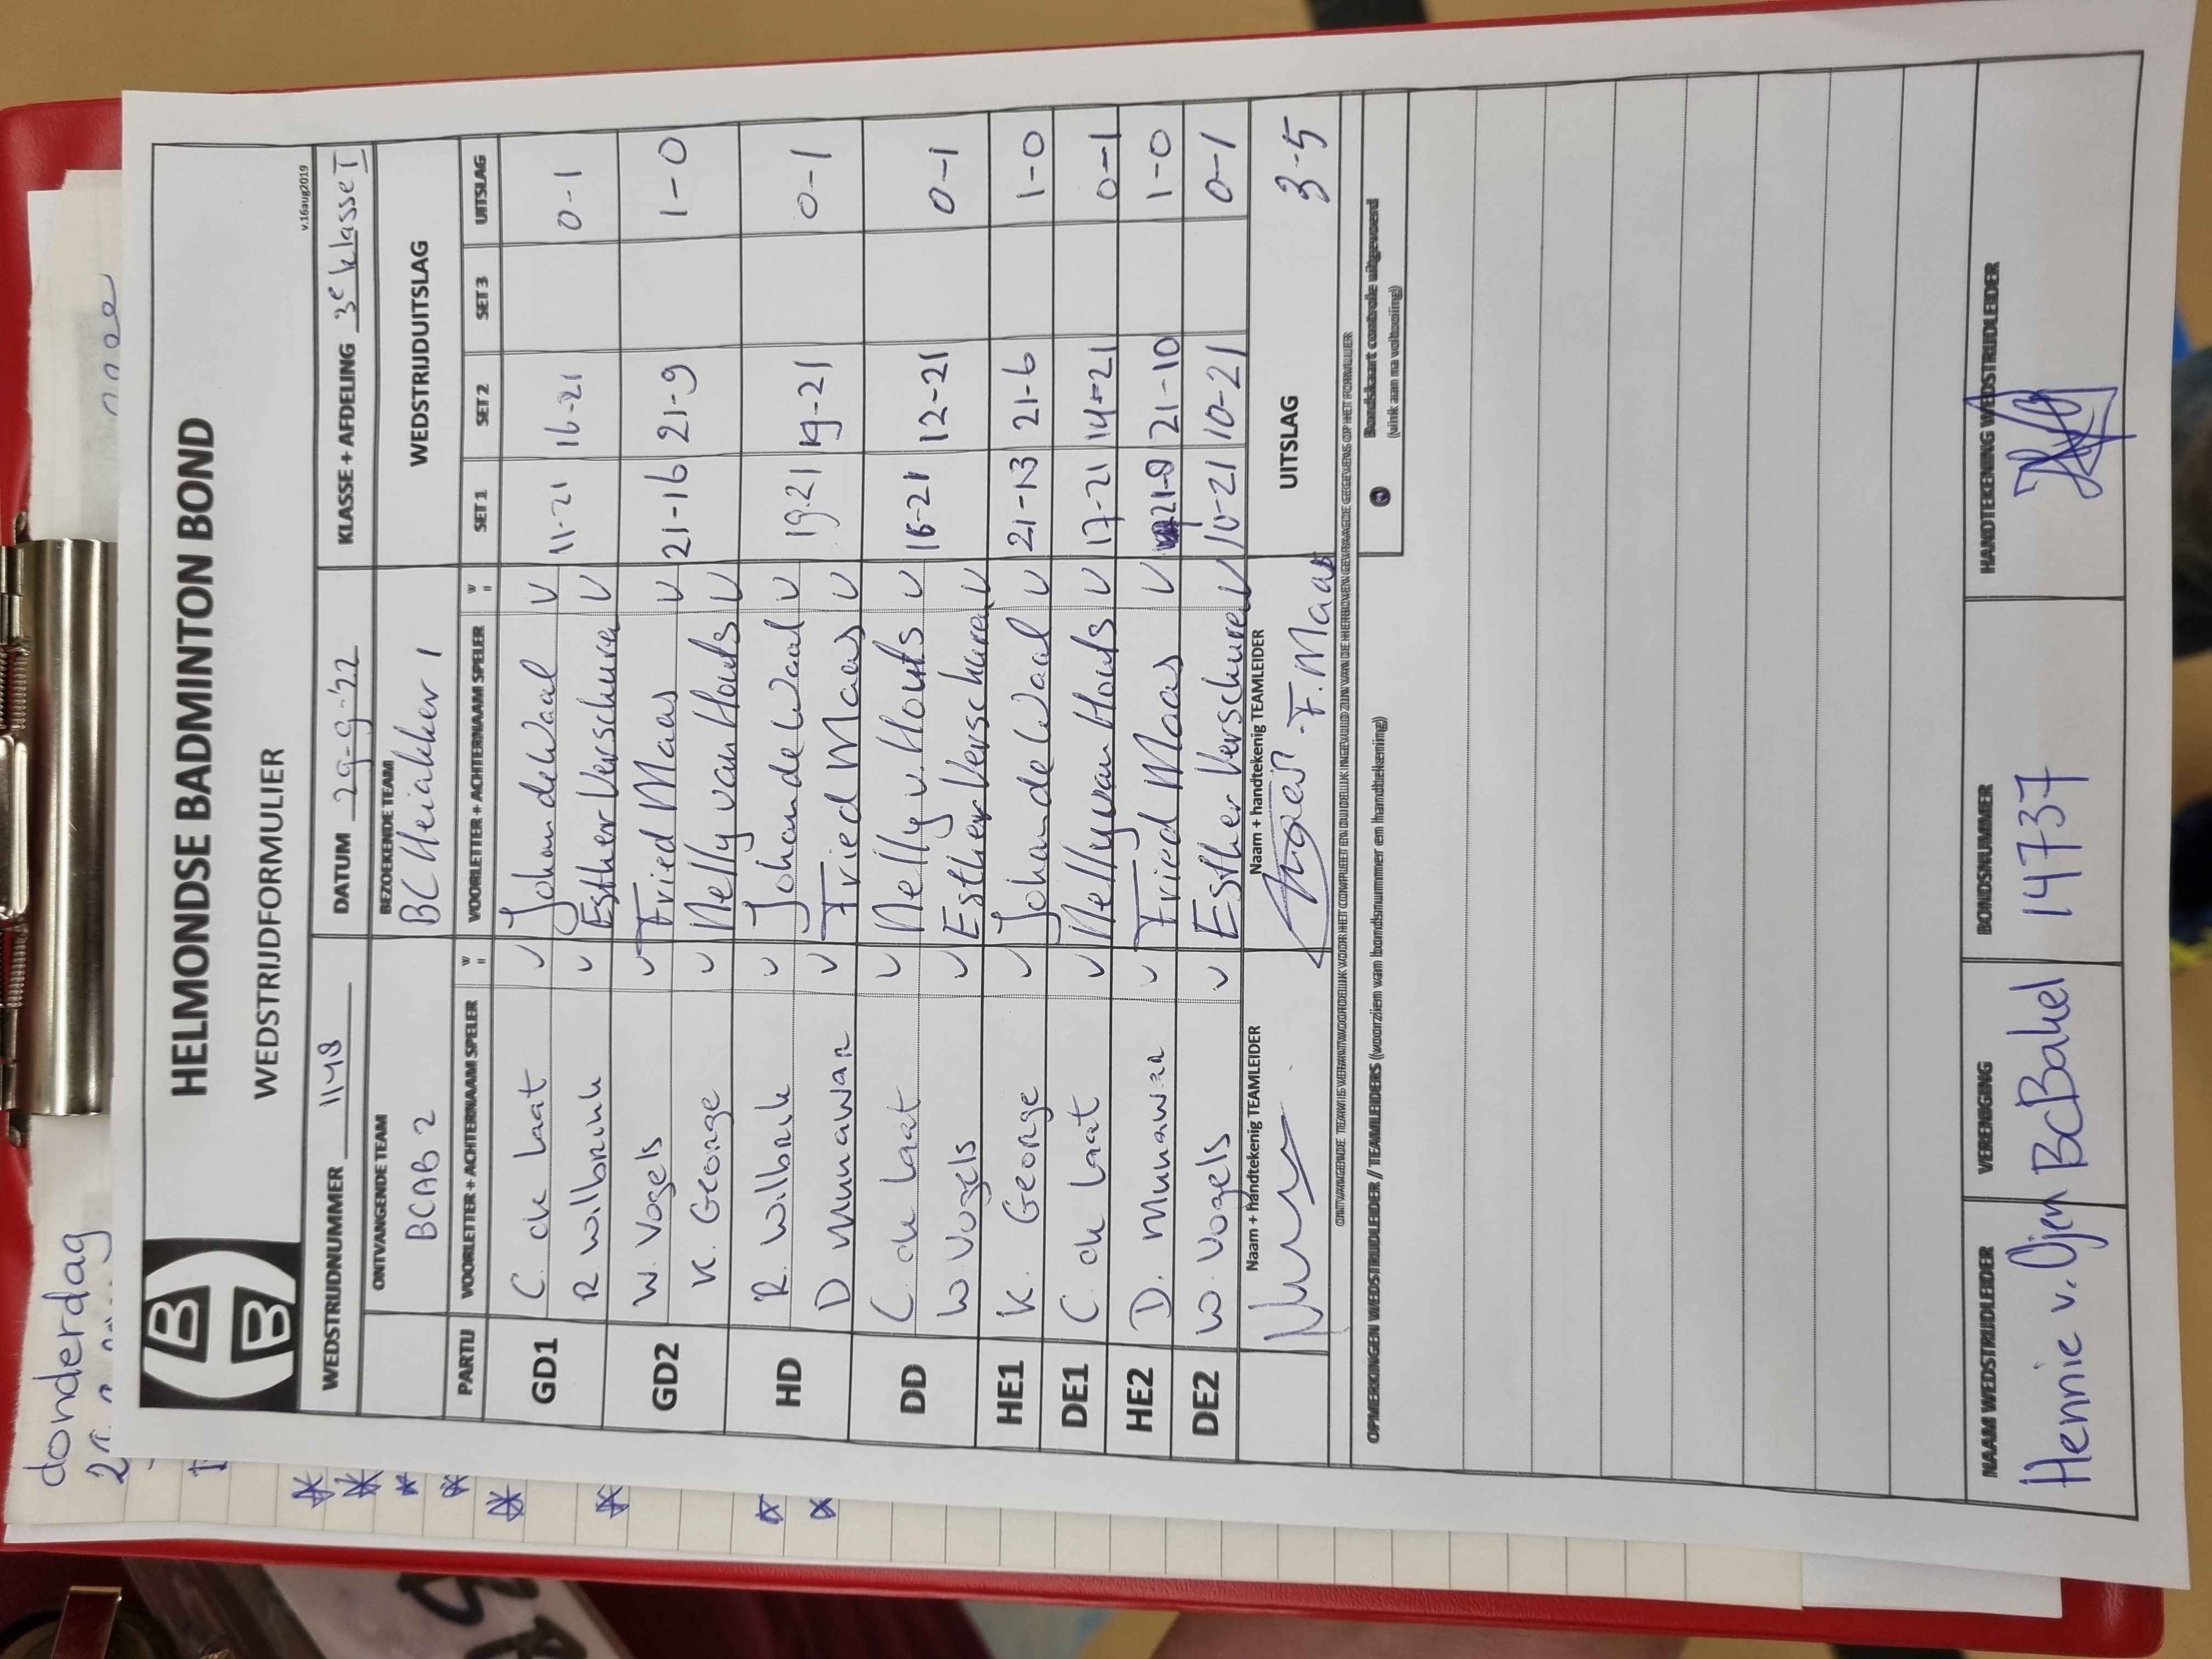 donderdag
HELMONDSE BADMINTON BOND
WEDSTRIJDFORMULIER
v.16aug2019
WEDSTRIJDNUMMER 1148 DATUM 29-9-'22 KLASSE + AFDELING 3e klasse I
ONTVANGENDE TEAM BEZOEKENDE TEAM WEDSTRIJDUITSLAG
BCAB 2 BC Heiakker 1
PARTIJ VOORLETTER + ACHTERNAAM SPELER VOORLETTER + ACHTERNAAM SPELER SET 1 SET 2 SET 3 UITSLAG
GD1 C. de Laat v Johan de Waal v 11-21 16-21 0-1
R. Wilbrink v Esther Verschuren v
GD2 W. Vogels v Fried Maas v 21-16 21-9 1-0
K. George v Nelly van Houts v
HD R. Wilbrink v Johan de Waal v 19-21 19-21 0-1
D Munawar v Fried Maas v
DD C. de Laat v Nelly v Houts v 16-21 12-21 0-1
W Vogels v Esther Verschuren v
HE1 K. George v Johan de Waal v 21-13 21-6 1-0
DE1 C. de Laat v Nelly van Houts v 17-21 14-21 0-1
HE2 D. Munawar v Fried Maas v 21-9 21-10 1-0
DE2 W. Vogels v Esther Verschuren v 10-21 10-21 0-1
Naam + handtekenig TEAMLEIDER Naam + handtekenig TEAMLEIDER UITSLAG 3-5
F. Maas
ONTVANGENDE TEAM IS VERANTWOORDELIJK VOOR HET COMPLEET EN DUIDELIJK INGEVULD ZIJN VAN DE HIERBOVEN GEVRAAGDE GEGEVENS OP HET FORMULIER
Bondskaart controle uitgevoerd
(vink aan na voltooiing)
OPMERKINGEN WEDSTRIJDLEIDER / TEAMLEIDERS (voorzien van bondsnummer en handtekening)
NAAM WEDSTRIJDLEIDER VERENIGING BONDSNUMMER HANDTEKENING WEDSTRIJDLEIDER
Hennie v. Ojen BC Bakel 14737